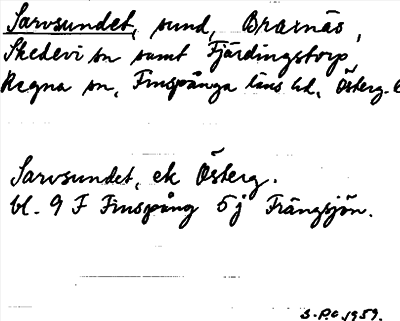 Sarvsundet, sund, Braxnäs,
Skedevi sn samt Fjärdingstorp,
Regna sn, Finspånga läns hd, Österg.
Sarvsundet, ek Österg.
bl. 9 F Finspång 5j Trängsjön.
S.P.o 1959.